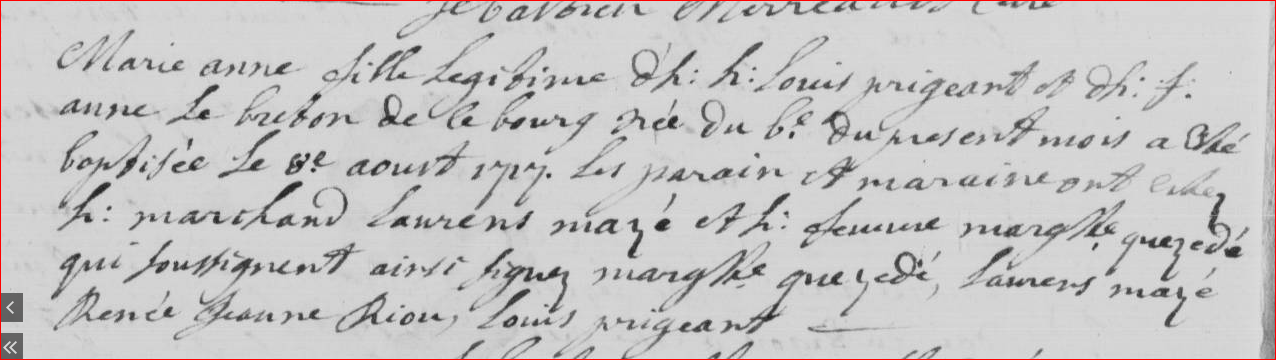 Marie anne fille Legitime d'h: h: Louis prigeant et dh: f:
anne Le breton de ce bourg née du 6.e du present mois a Esté
baptisée Le 8.e aoust 1717. Les parain et maraine ont estez
h: marchand Laurens mazé et h: femme marg.tte quezedé
qui soussignent ainsi signez marg.tte quezedé, Laurens mazé
Renée Jeanne Riou, Louis prigeant